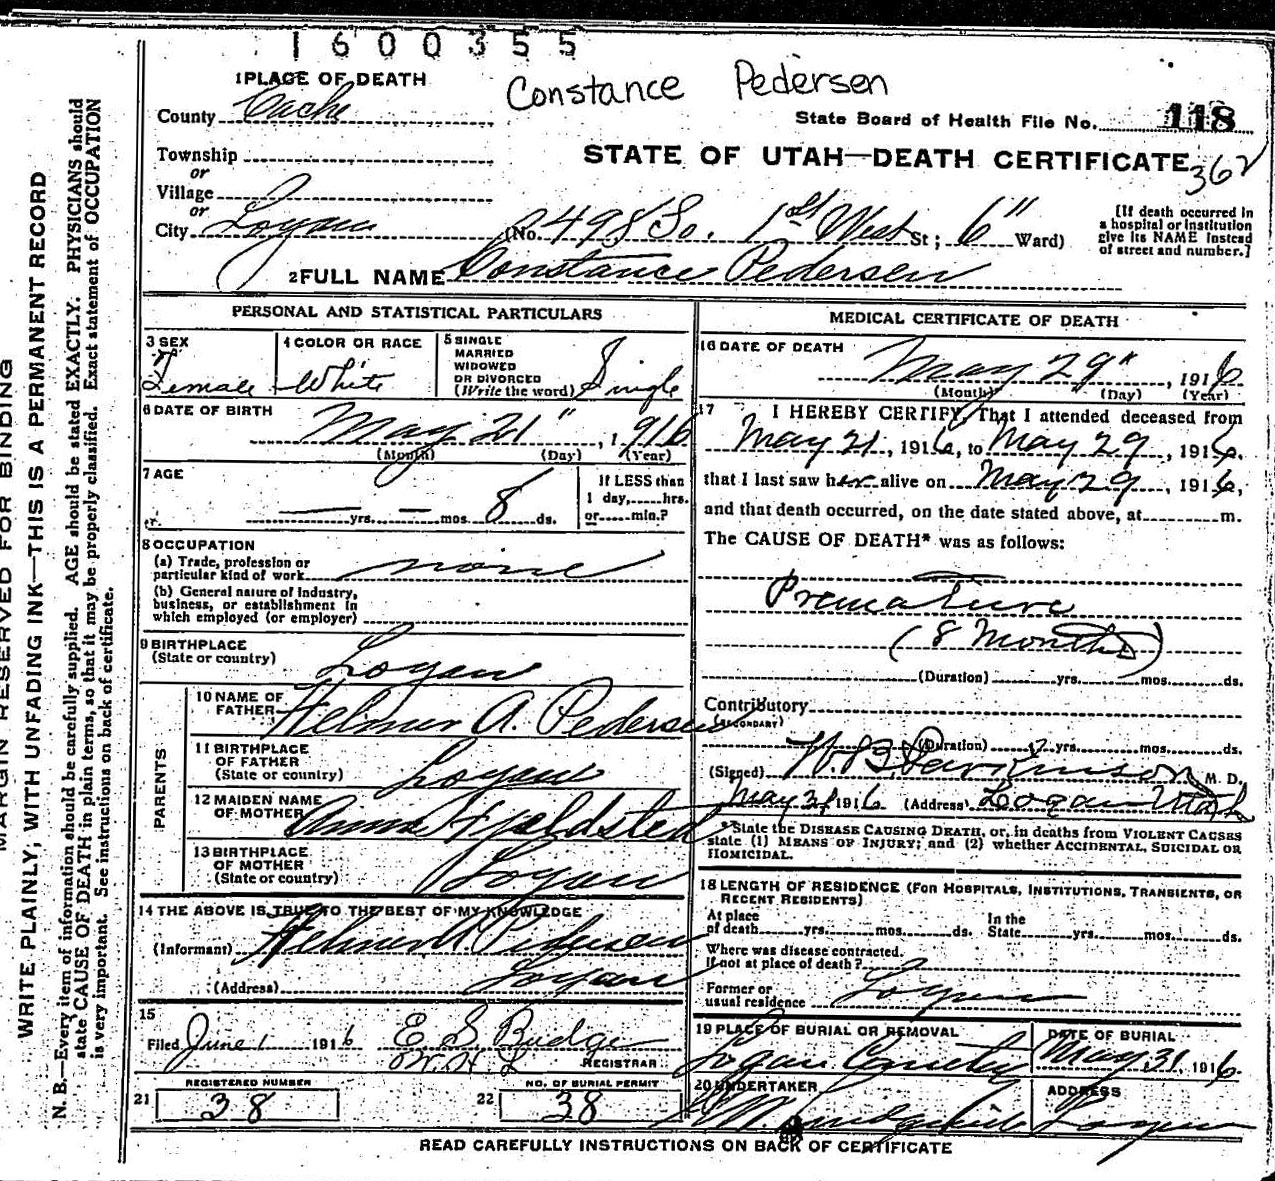 1600355
1 PLACE OF DEATH
Constance Pedersen
County Cache
State Board of Health File No. 118
Township
STATE OF UTAH—DEATH CERTIFICATE
362
or
Village
or
City Logan (No. 498 So. 1st West St; 6" Ward)
[If death occurred in
a hospital or institution
give its NAME instead
of street and number.]
2 FULL NAME Constance Pedersen
PERSONAL AND STATISTICAL PARTICULARS
3 SEX
Female
4 COLOR OR RACE
White
5 SINGLE
MARRIED
WIDOWED
OR DIVORCED
(Write the word) Single
6 DATE OF BIRTH
May 21", 1916
(Month) (Day) (Year)
7 AGE
— yrs. — mos. 8 ds.
If LESS than
1 day, hrs.
or min.?
8 OCCUPATION
(a) Trade, profession or
particular kind of work none
(b) General nature of Industry,
business, or establishment in
which employed (or employer)
9 BIRTHPLACE
(State or country) Logan
PARENTS
10 NAME OF
FATHER Helmer A. Pedersen
11 BIRTHPLACE
OF FATHER
(State or country) Logan
12 MAIDEN NAME
OF MOTHER Anna Hjeldsted
13 BIRTHPLACE
OF MOTHER
(State or country) Logan
14 THE ABOVE IS TRUE TO THE BEST OF MY KNOWLEDGE
(Informant) Helmer A. Pedersen
(Address) Logan
15
Filed June 1 1916 E S Budge
W. H. L REGISTRAR
REGISTERED NUMBER
21 38
NO. OF BURIAL PERMIT
22 38
MEDICAL CERTIFICATE OF DEATH
16 DATE OF DEATH
May 29", 1916
(Month) (Day) (Year)
17 I HEREBY CERTIFY, That I attended deceased from
May 21, 1916, to May 29, 1916,
that I last saw her alive on May 29, 1916,
and that death occurred, on the date stated above, at m.
The CAUSE OF DEATH* was as follows:
Premature
(8 Months)
(Duration) yrs. mos. ds.
Contributory
(SECONDARY)
(Duration) yrs. mos. ds.
(Signed) W. B. Parkinson M. D.
May 31 1916 (Address) Logan Utah
*State the DISEASE CAUSING DEATH, or, in deaths from VIOLENT CAUSES
state (1) MEANS OF INJURY; and (2) whether ACCIDENTAL, SUICIDAL OR
HOMICIDAL.
18 LENGTH OF RESIDENCE (FOR HOSPITALS, INSTITUTIONS, TRANSIENTS, OR
RECENT RESIDENTS)
At place
of death yrs. mos. ds.
In the
State yrs. mos. ds.
Where was disease contracted.
If not at place of death?
Former or
usual residence Logan
19 PLACE OF BURIAL OR REMOVAL
Logan Cemetery
DATE OF BURIAL
May 31, 1916.
20 UNDERTAKER
ADDRESS
Logan
READ CAREFULLY INSTRUCTIONS ON BACK OF CERTIFICATE
MARGIN RESERVED FOR BINDING
WRITE PLAINLY; WITH UNFADING INK—THIS IS A PERMANENT RECORD
N. B.—Every item of information should be carefully supplied. AGE should be stated EXACTLY. PHYSICIANS should
state CAUSE OF DEATH in plain terms, so that it may be properly classified. Exact statement of OCCUPATION
is very important. See instructions on back of certificate.